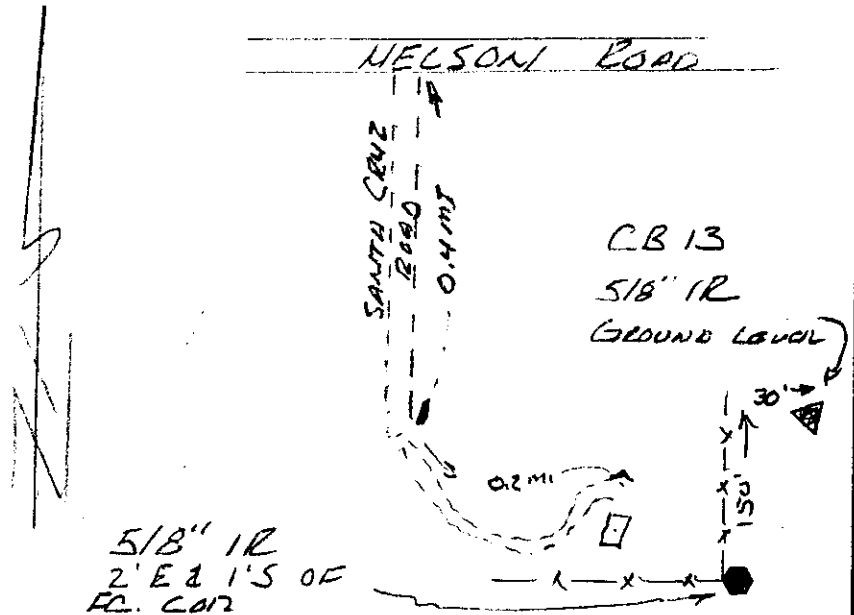 NELSON ROAD
SANTA CRUZ
ROAD
0.4 MI
CB 13
5/8" IR
GROUND LEVEL
30'
150'
0.2 MI
5/8" IR
2' E & 1'S OF
FC. COR
N